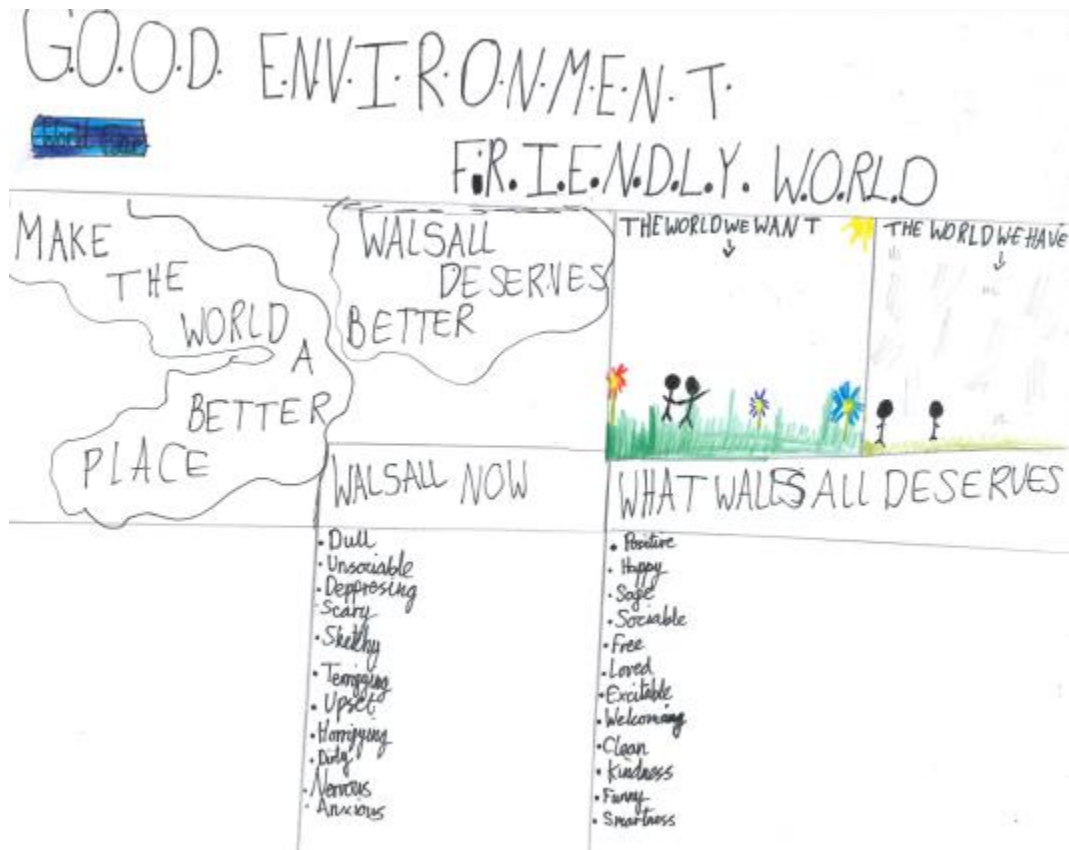 G.O.O.D. E.N.V.I.R.O.N.M.E.N.T.
F.R.I.E.N.D.L.Y. W.O.R.L.D
MAKE
THE
WORLD
A
BETTER
PLACE
WALSALL
DESERVES
BETTER
THE WORLD WE WANT
THE WORLD WE HAVE
WALSALL NOW
• Dull
• Unsociable
• Deppresing
• Scary
• Sketchy
• Terrifying
• Upset
• Horrifying
• Dirty
• Nervous
• Anxious
WHAT WALSALL DESERVES
• Positive
• Happy
• Safe
• Sociable
• Free
• Loved
• Excitable
• Welcoming
• Clean
• Kindness
• Funny
• Smartness